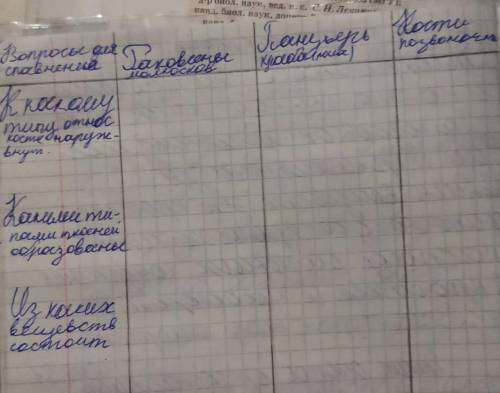 д-р биол. наук, вед. н. с.
канд. биол. наук,
Вопросы для
сравнения
Раковины
молюсков
Панцырь
краба(рака)
Кости
позвоноч
К какому
типу относ
косте наруж-
внут.
Какими ти-
пами тканей
образованы
Из каких
веществ
состоит